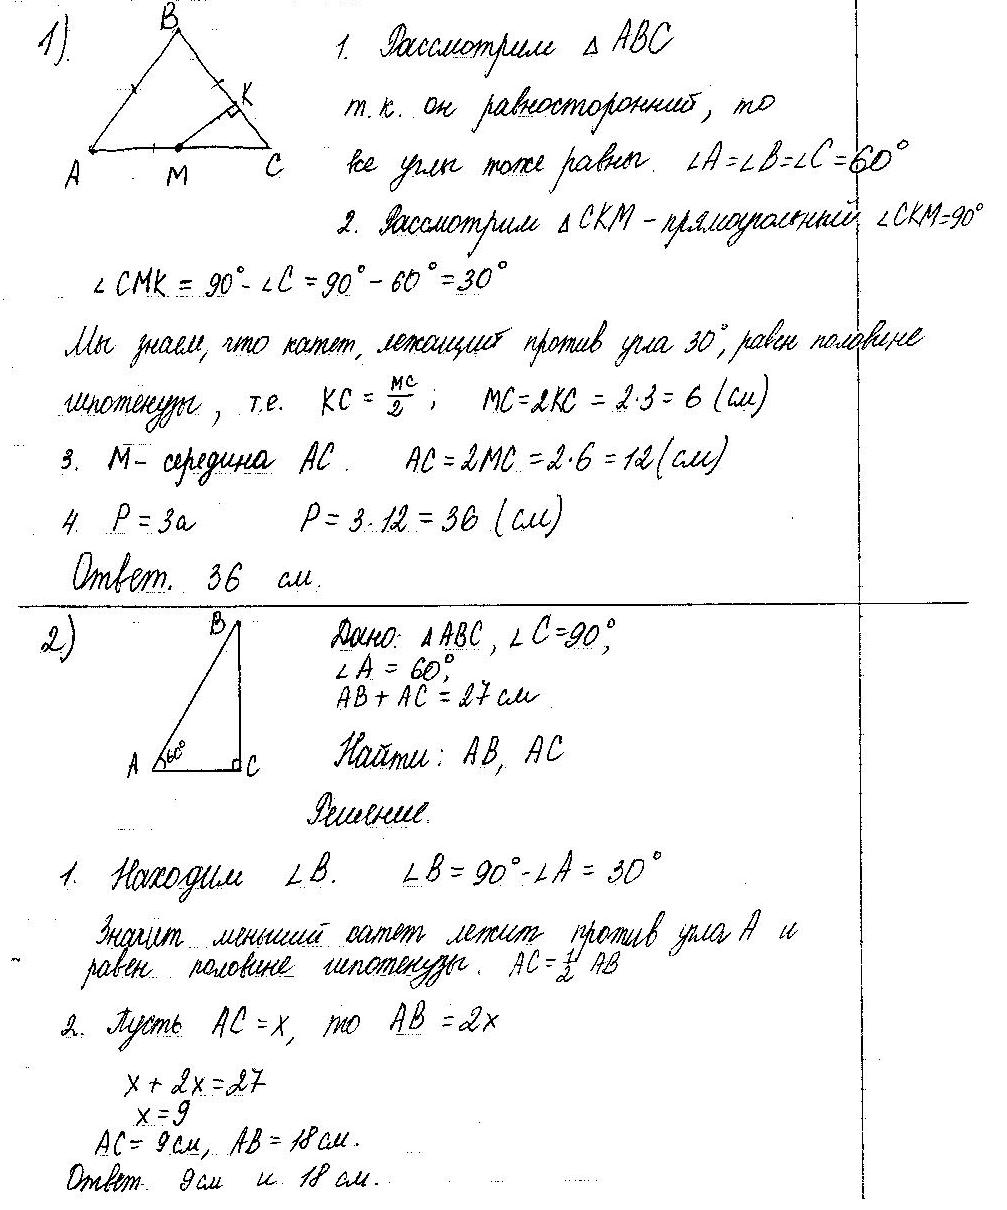 1).
B
K
A
M
C
1. Рассмотрим △ ABC
т.к. он равносторонний, то
все углы тоже равны. ∠A=∠B=∠C=60°
2. Рассмотрим △CKM – прямоугольный, ∠CKM=90°
∠CMK = 90°-∠C = 90°-60°=30°
Мы знаем, что катет, лежащий против угла 30°, равен половине
гипотенузы, т.е. KC = MC/2 ; MC=2KC = 2·3=6 (см)
3. M – середина AC. AC=2MC=2·6=12(см)
4. P=3a P=3·12=36 (см)
Ответ. 36 см.
2)
B
A
60°
C
Дано: △ABC, ∠C=90°,
∠A = 60°,
AB+AC=27см
Найти: AB, AC
Решение.
1. Находим ∠B. ∠B=90°-∠A=30°
Значит меньший катет лежит против угла A и
равен половине гипотенузы. AC=1/2 AB
2. Пусть AC=x, то AB=2x
x+2x=27
x=9
AC=9см, AB=18см.
Ответ. 9см и 18 см.